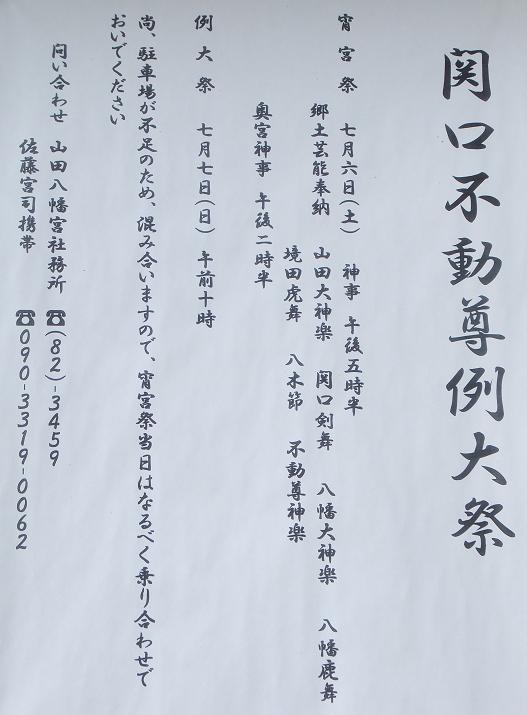 関口不動尊例大祭
宵宮祭 七月六日(土) 神事 午後五時半
郷土芸能奉納 山田大神楽 関口剣舞 八幡大神楽 八幡鹿舞
境田虎舞 八木節 不動尊神楽
奥宮神事 午後二時半
例大祭 七月七日(日) 午前十時
尚、駐車場が不足のため、混み合いますので、宵宮祭当日はなるべく乗り合わせで
おいでください
問い合わせ 山田八幡宮社務所 ☎(82)-3459
佐藤宮司携帯 ☎090-3319-0062